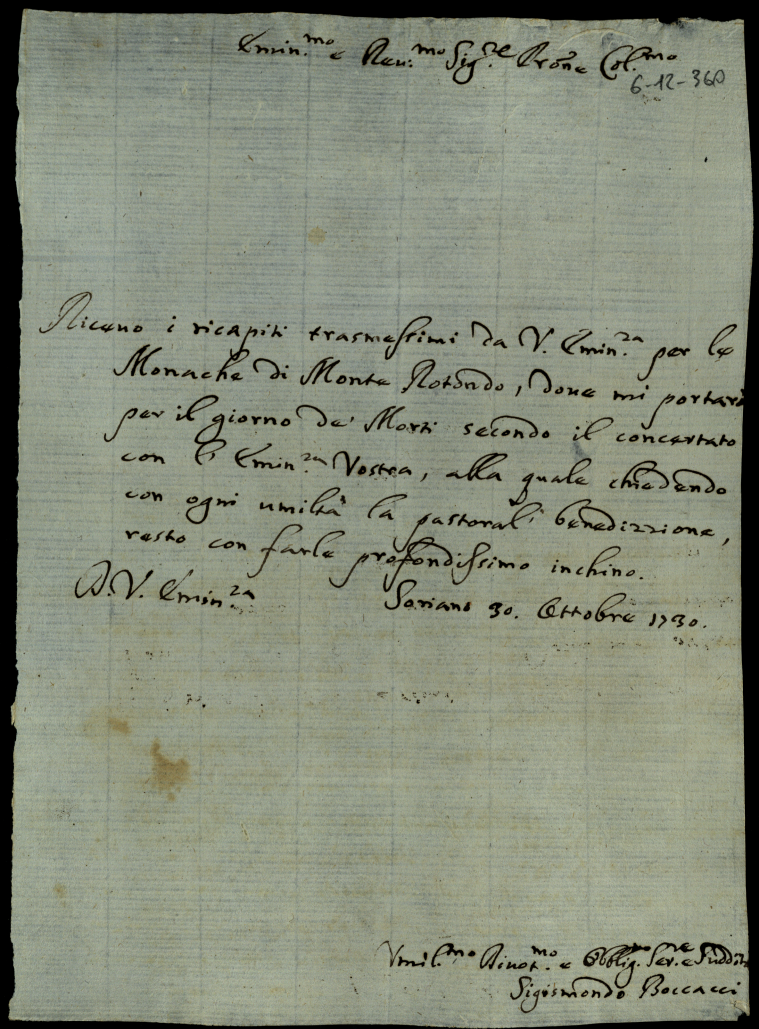 Emin.mo e Reu.mo Sig.re Prone Col.mo
6-12-360
Riceuo i ricapiti trasmessimi da V. Emin.za per le
Monache di Monte Rotondo, doue mi portarò
per il giorno de' Morti secondo il concertato
con l' Emin.za Vostra, alla quale chiedendo
con ogni umiltà la pastoral' benedizzione,
resto con farle profondissimo inchino.
D. V. Emin.za Soriano 30. Ottobre 1730.
Vmil.mo Diuot.mo e Obblig.mo Ser.re e Suddito
Sigismondo Boccacci